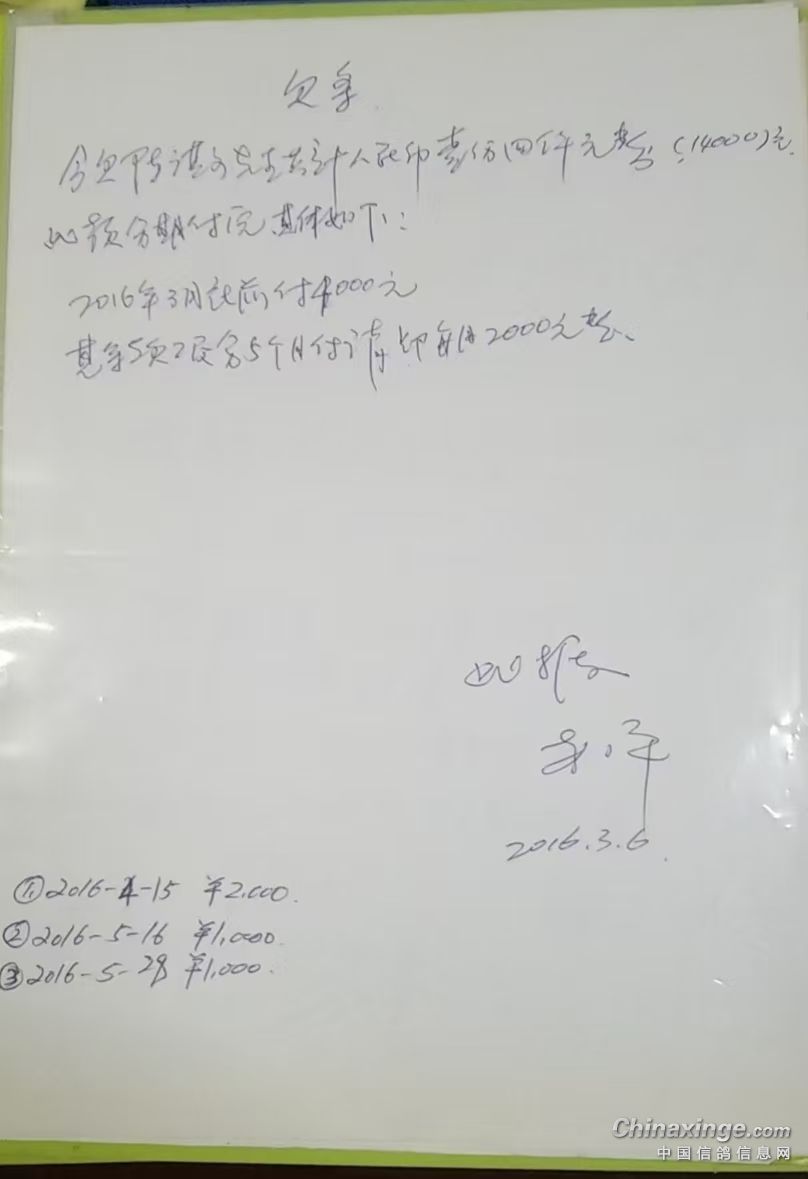 欠条
今欠 先生共计人民币壹万四仟元整 (14000)元
此款分期付完 具体如下:
2016年3月 前付4000元
其余 5个月付清 即每月2000元整、
此据
2016.3.6.
①2016-4-15 ¥2,000.
②2016-5-16 ¥1,000.
③2016-5-28 ¥1,000.
Chinaxinge.com
中国信鸽信息网